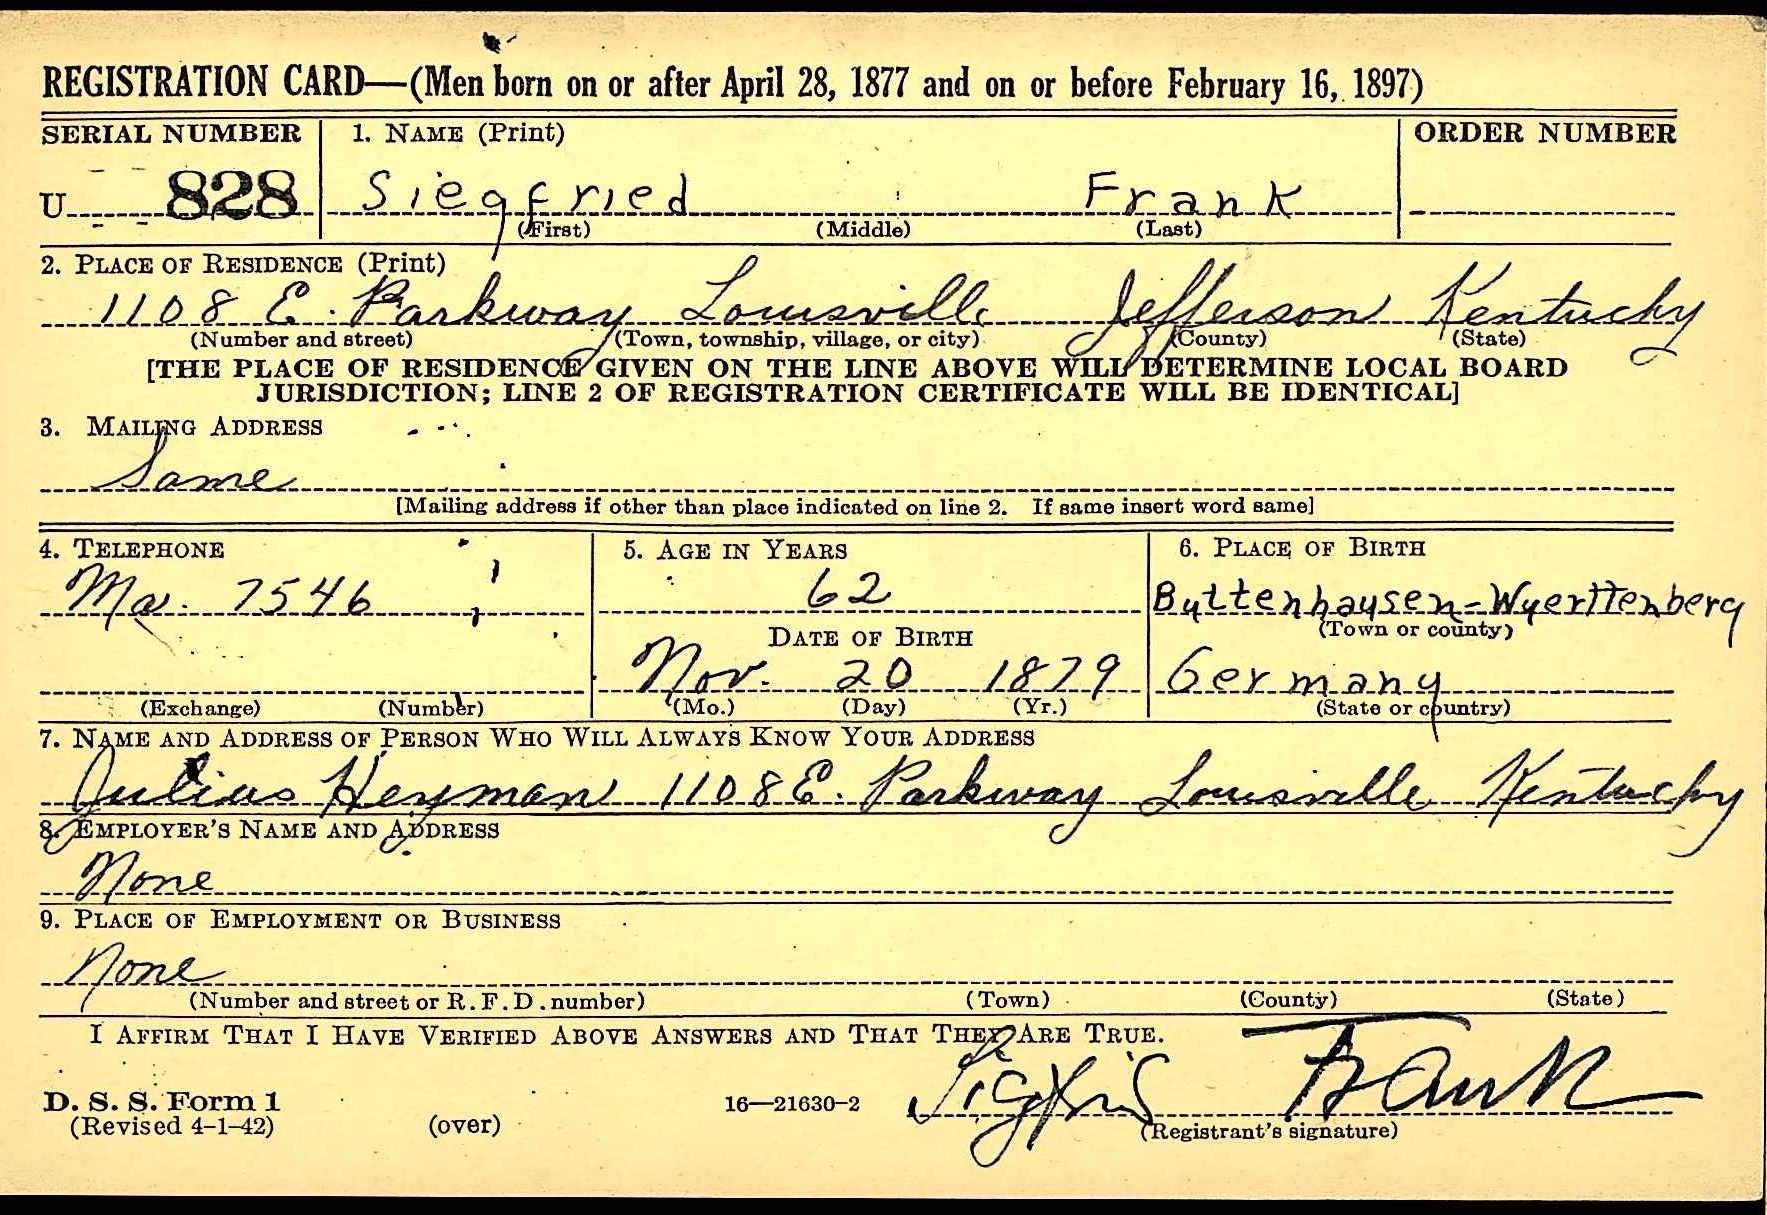 REGISTRATION CARD—(Men born on or after April 28, 1877 and on or before February 16, 1897)
SERIAL NUMBER 1. NAME (Print) ORDER NUMBER
U 828 Siegfried Frank
(First) (Middle) (Last)
2. PLACE OF RESIDENCE (Print)
1108 E. Parkway Louisville Jefferson Kentucky
(Number and street) (Town, township, village, or city) (County) (State)
[THE PLACE OF RESIDENCE GIVEN ON THE LINE ABOVE WILL DETERMINE LOCAL BOARD
JURISDICTION; LINE 2 OF REGISTRATION CERTIFICATE WILL BE IDENTICAL]
3. MAILING ADDRESS
Same
[Mailing address if other than place indicated on line 2. If same insert word same]
4. TELEPHONE 5. AGE IN YEARS 6. PLACE OF BIRTH
Ma. 7546 62 Buttenhausen-Wuerttenberg
DATE OF BIRTH (Town or county)
Nov. 20 1879 Germany
(Exchange) (Number) (Mo.) (Day) (Yr.) (State or country)
7. NAME AND ADDRESS OF PERSON WHO WILL ALWAYS KNOW YOUR ADDRESS
Julius Heyman 1108 E. Parkway Louisville Kentucky
8. EMPLOYER'S NAME AND ADDRESS
None
9. PLACE OF EMPLOYMENT OR BUSINESS
None
(Number and street or R. F. D. number) (Town) (County) (State)
I AFFIRM THAT I HAVE VERIFIED ABOVE ANSWERS AND THAT THEY ARE TRUE.
Frank
D. S. S. Form 1
(Revised 4-1-42) (over) 16—21630-2 (Registrant's signature)